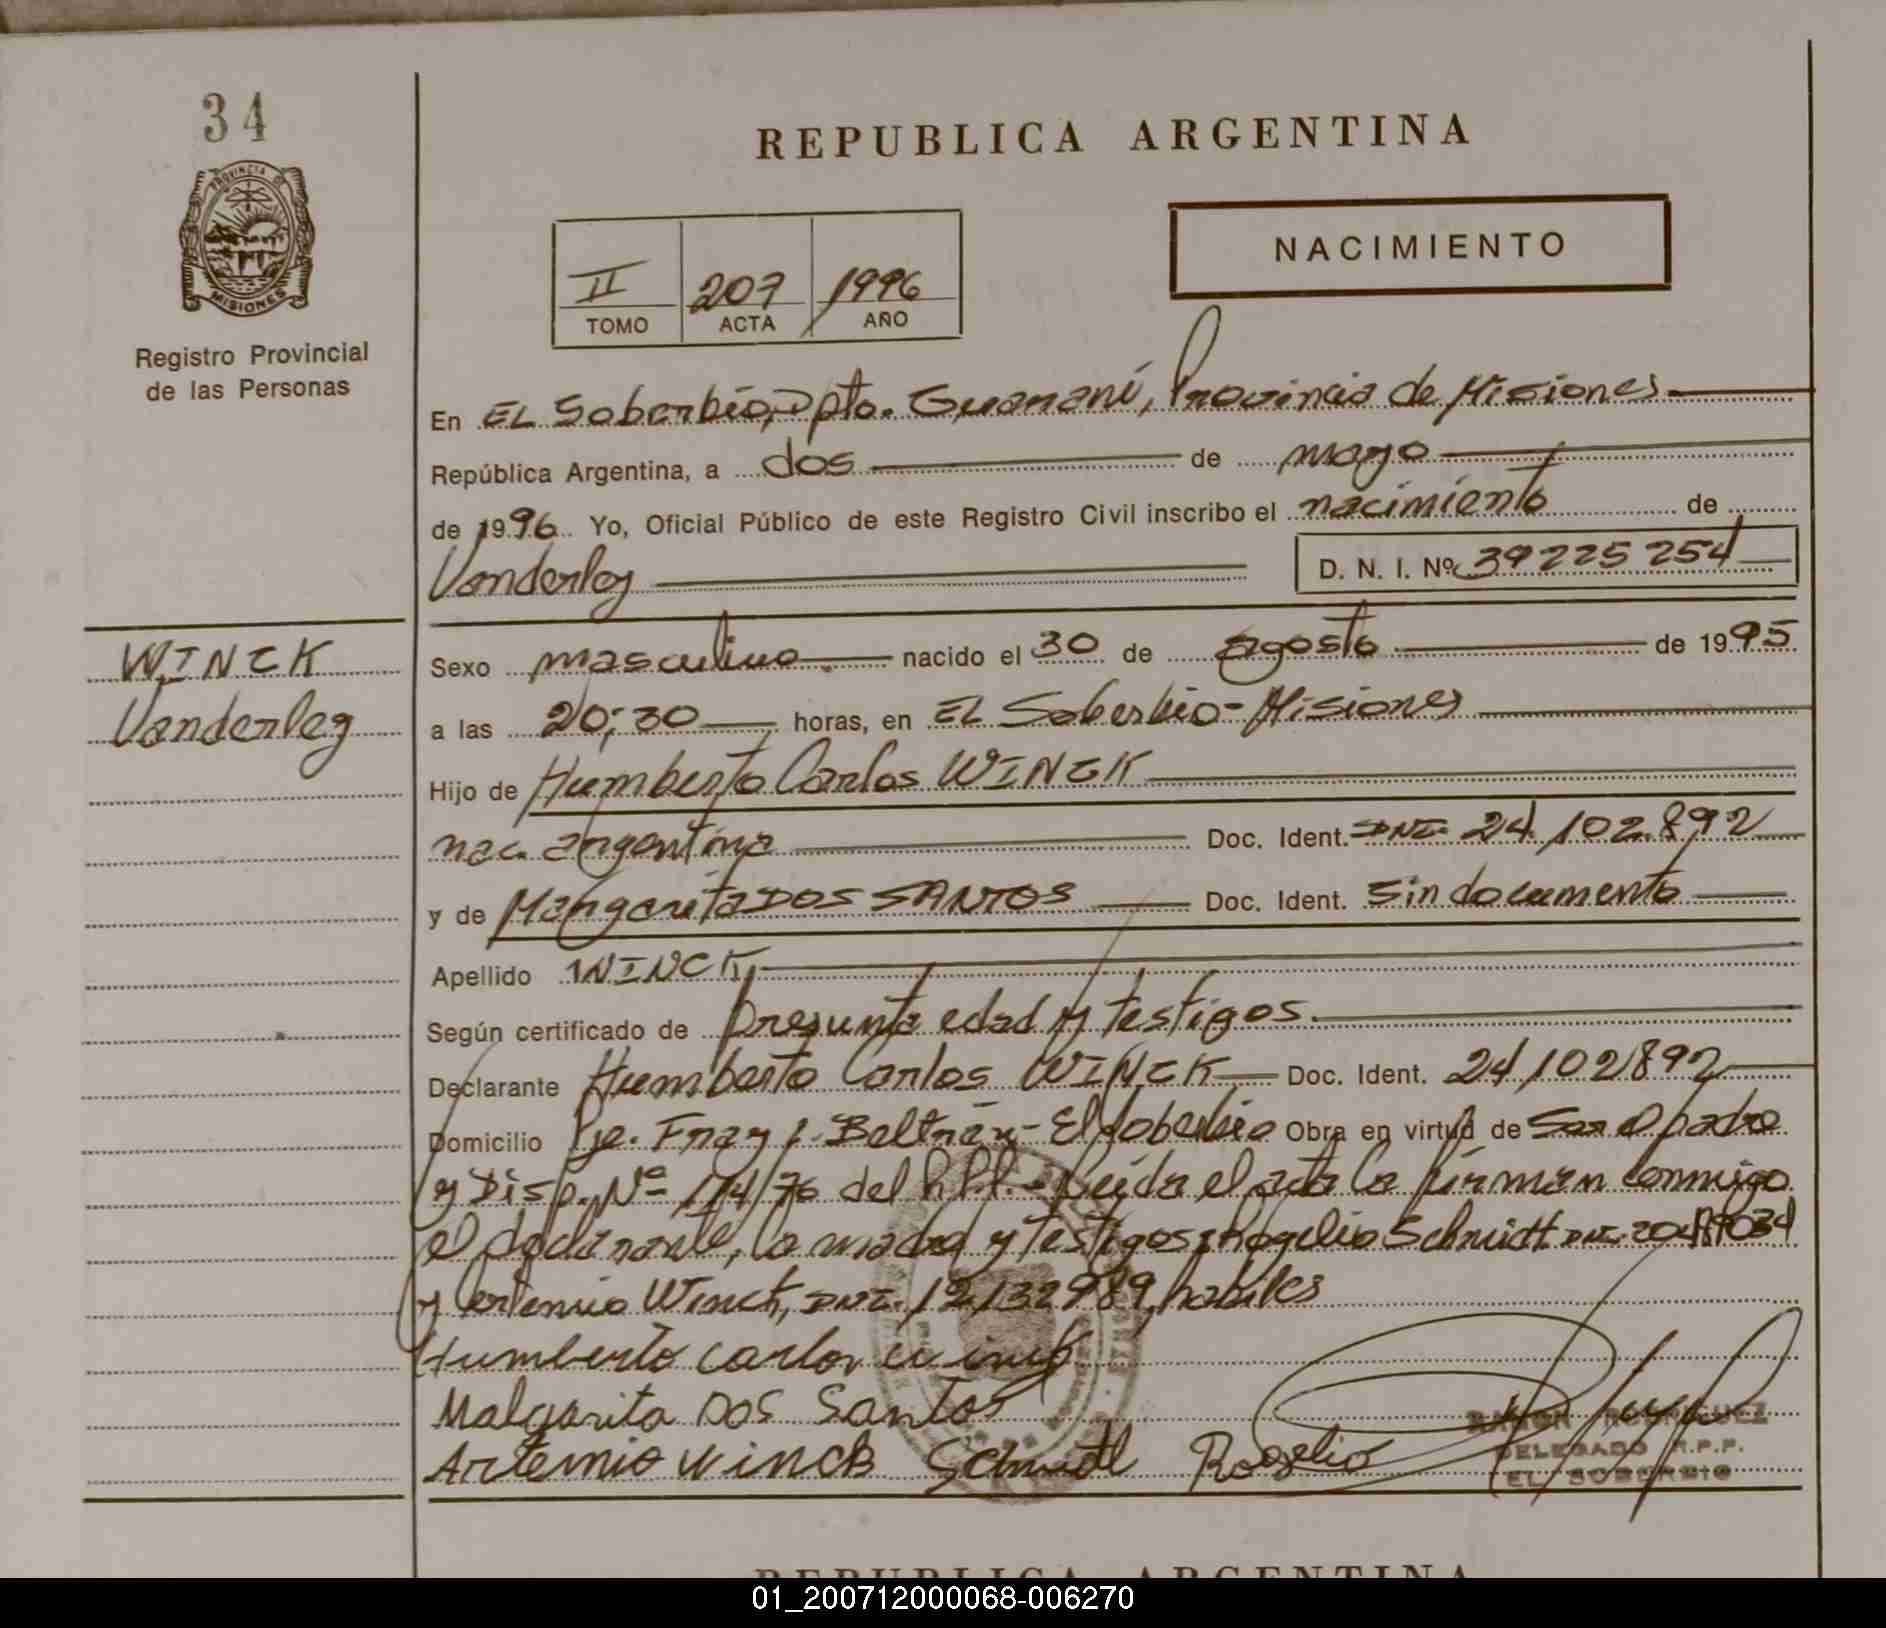 34
REPUBLICA ARGENTINA
PROVINCIA DE
MISIONES
NACIMIENTO
II 207 1996
TOMO ACTA AÑO
Registro Provincial
de las Personas
En EL Soberbio, Dpto. Guaraní, Provincia de Misiones
República Argentina, a dos de mayo
de 1996 Yo, Oficial Público de este Registro Civil inscribo el nacimiento de
Vanderley D. N. I. Nº 39225254
WINCK
Vanderley
Sexo masculino nacido el 30 de agosto de 1995
a las 20;30 horas, en EL Soberbio - Misiones
Hijo de Humberto Carlos WINCK
nac. argentina Doc. Ident. DNI. 24.102.892
y de Margarita DOS SANTOS Doc. Ident. Sin documento
Apellido WINCK
Según certificado de presunta edad y testigos.
Declarante Humberto Carlos WINCK Doc. Ident. 24102892
Domicilio Pje. Fray L. Beltrán - El Soberbio Obra en virtud de Ser el padre
y Disp. Nº 174/76 del Leída el acta la firman conmigo
el declarante, la madre y testigos: Rogelio Schmidt DNI.
y Artemio Winck, DNI. 12132989, habiles
Humberto Carlos winck
Malgarita DOS Santos
Artemio winck Schmidt Rogelio
RAMON RODRIGUEZ
DELEGADO R.P.P.
EL SOBERBIO
REPUBLICA ARGENTINA
01_200712000068-006270